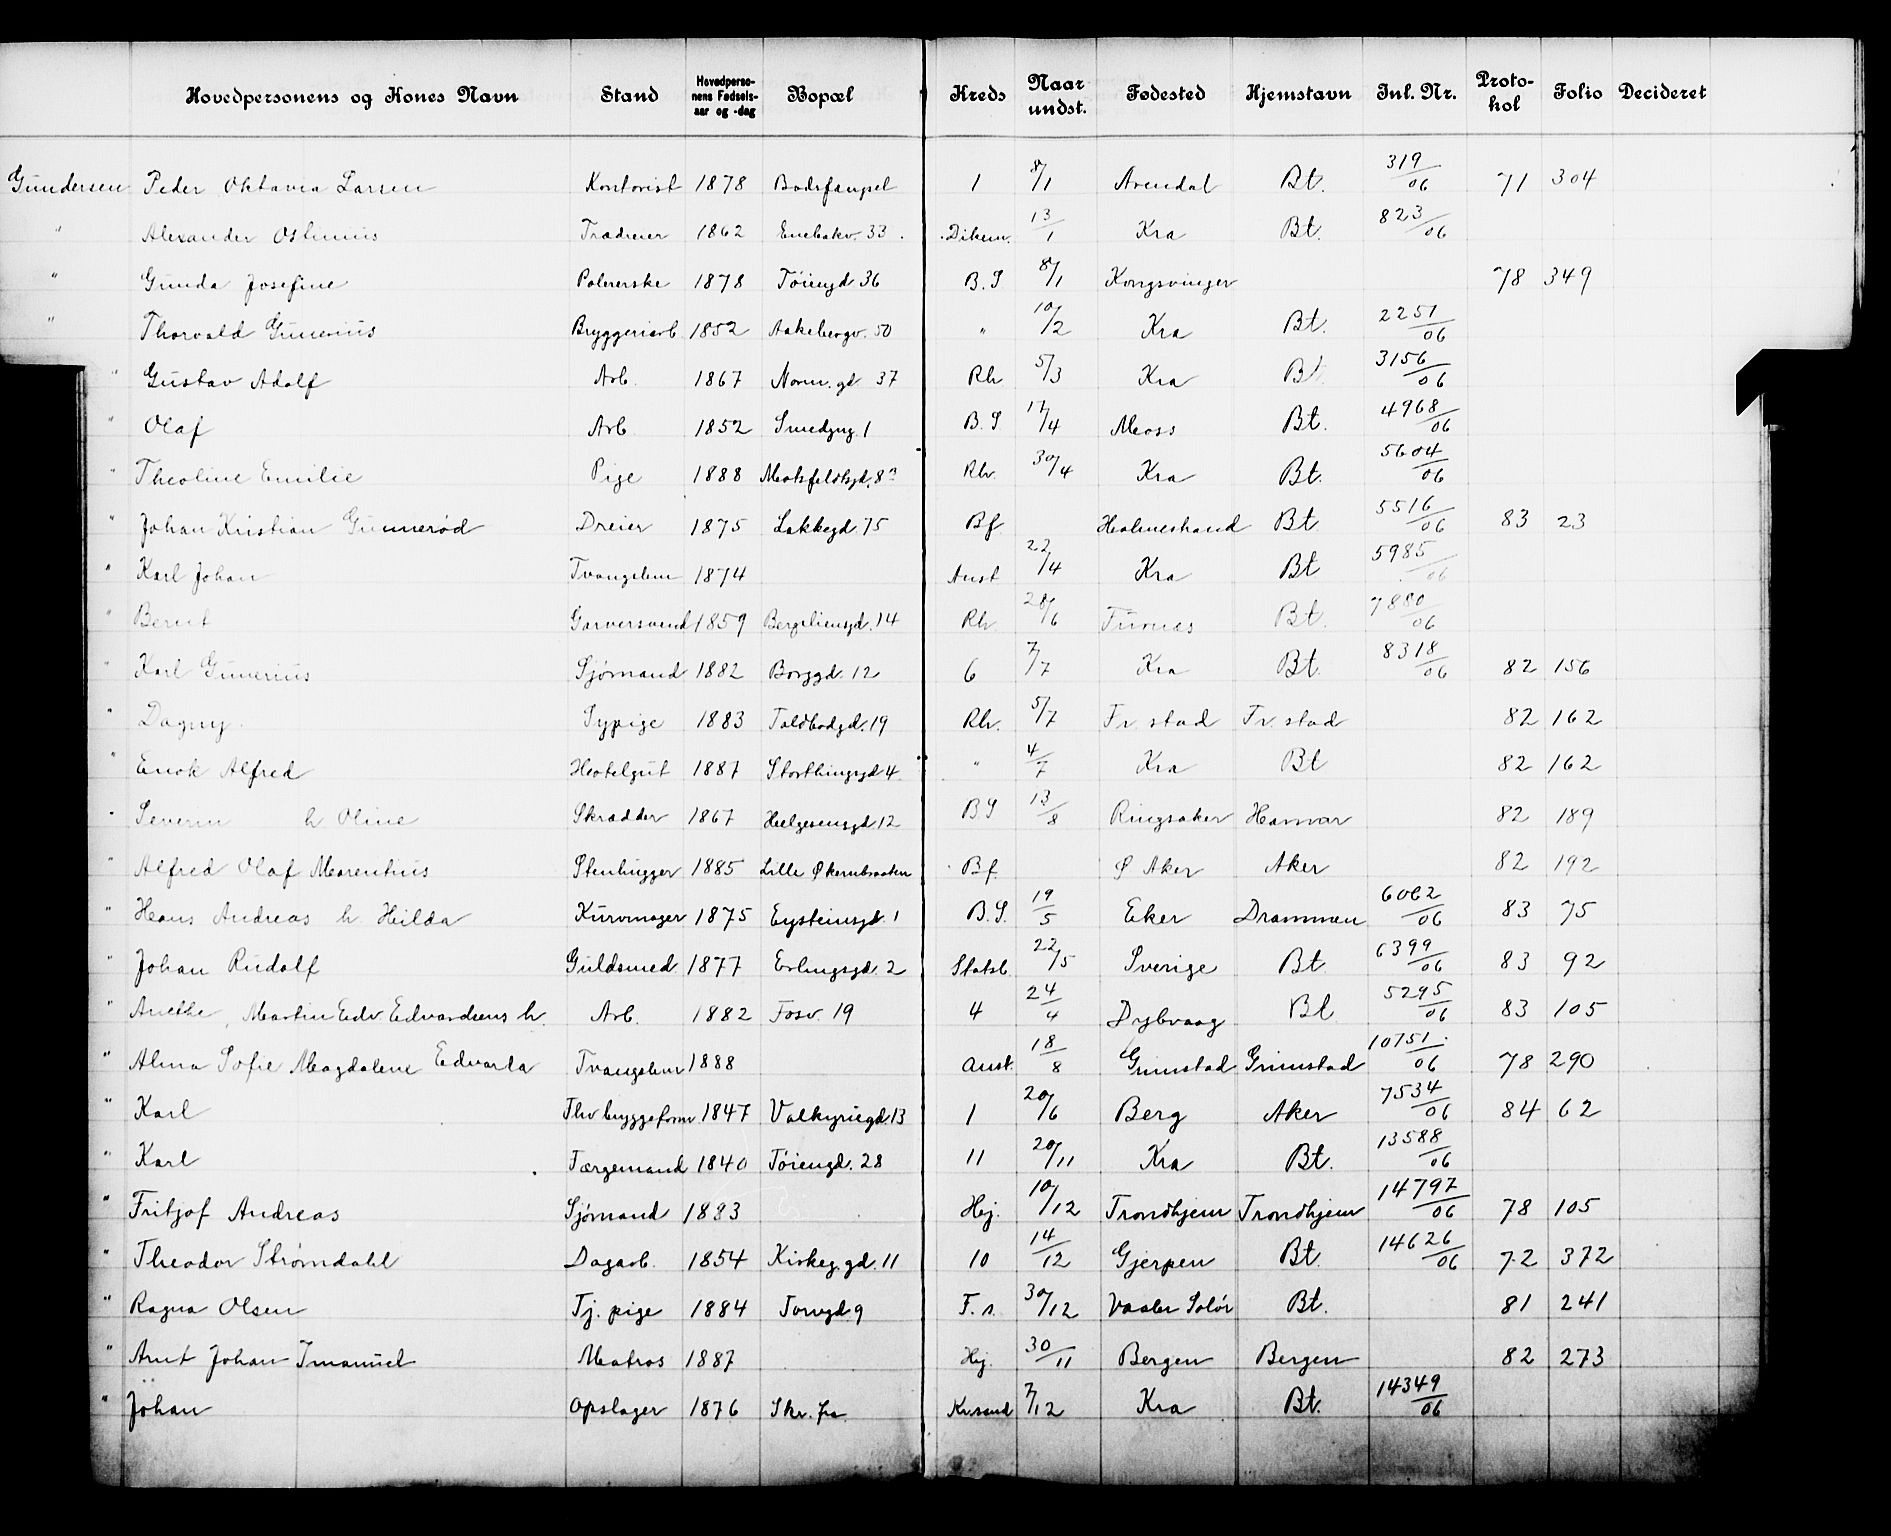 Hovedpersonens og Kones Navn Stand Hovedperso-nens Fødsels-aar og -dag Bopæl Kreds Naar undst. Fødested Hjemstavn Inl. Nr. Proto-kol Folio Decideret
Gundersen Peder Oktavia Larsen Kontorist 1878 Bodsfængsl 1 8/1 Arendal Bt. 319/06 71 304
" Alexander Oslinius Trædreier 1862 Enebakv. 33 Dikem. 13/1 Kra Bt. 823/06
" Gunda Josefine Polererske 1878 Tøiengd 36 B.S 8/1 Kongsvinger 78 349
" Thorvald Gunerius Bryggeriarb 1852 Aakebergv. 50 " 10/2 Kra Bt. 2251/06
" Gustav Adolf Arb. 1867 Norm.gd 37 Rh 5/3 Kra Bt. 3156/06
" Olaf Arb. 1852 Smedgng. 1 B.S 17/4 Moss Bt. 4968/06
" Theoline Emilie Pige 1888 Motzfeldtsgd. 8a Rh. 30/4 Kra Bt. 5604/06
" Johan Kristian Gunnerød Dreier 1875 Lakkegd. 75 Bf. Holmestrand Bt. 5516/06 83 23
" Karl Johan Tvangslem 1874 Anst 22/4 Kra Bt 5985/06
" Bernt Garversvend 1859 Bergsliensgd. 14 Rh. 28/6 Furnes Bt. 7880/06
" Karl Gunerius Sjømand 1882 Borggd. 12 6 7/7 Kra Bt. 8318/06 82 156
" Dagny. Sypige 1883 Toldbodgd. 19 Rh. 5/7 Fr.stad Fr.stad 82 162
" Enok Alfred Hotelgut 1887 Storthingsgd 4 " 4/7 Kra Bt 82 162
" Severin h. Oline Skrædder 1867 Helgesensgd 12 BS 13/8 Ringsaker Hamar 82 189
" Alfred Olaf Marentius Stenhugger 1885 Lille Økernbraaten Bf. Ø Aker Aker 82 192
" Hans Andreas h. Hilda Kurvmager 1875 Eysteinsgd. 1 B.S. 19/5 Eker Drammen 6062/06 83 75
" Johan Rudolf Guldsmed 1877 Erlingsgd. 2 Statsb. 22/5 Sverige Bt 6399/06 83 92
" Anethe, Martin Edv Edvardsens h. Arb. 1882 Fosv. 19 4 24/4 Dybvaag Bt 5295/06 83 105
" Alma Sofie Magdalene Edvarda Tvangslem 1888 Anst. 18/8 Grimstad Grimstad 10751/06 78 290
" Karl Fhv bryggeform 1847 Valkyriegd. 13 1 20/6 Berg Aker 7534/06 84 62
" Karl Færgemand 1840 Tøiengd. 28 11 20/11 Kra Bt. 13588/06
" Fritjof Andreas Sjømand 1883 Hej. 10/12 Trondhjem Trondhjem 14797/06 78 105
" Theodor Strømdahl Dagarb. 1854 Kirkeg.gd. 11 10 14/12 Gjerpen Bt. 14626/06 72 372
" Ragna Olsen Tj. pige 1884 Torvgd. 9 F.s. 30/12 Vaaler Solør Bt. 81 241
" Arnt Johan Imanuel Matros 1887 Hej. 30/11 Bergen Bergen 82 273
" Johan Opslager 1876 Skr. fra Kr.sand 7/12 Kra Bt. 14349/06